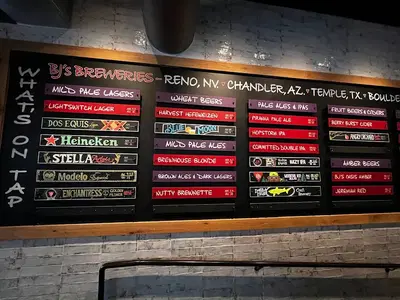 WHAT'S ON TAP
BJ's BREWERIES - RENO, NV. CHANDLER, AZ. TEMPLE, TX. BOULDE
MILD PALE LAGERS
LIGHTSWITCH LAGER
DOS EQUIS
Heineken
STELLA Artois
Modelo Especial
ENCHANTRESS
WHEAT BEERS
HARVEST HEFEWEIZEN
BLUE MOON
MILD PALE ALES
BREWHOUSE BLONDE
BROWN ALES & DARK LAGERS
NUTTY BREWNETTE
PALE ALES & IPAS
PIRANHA PALE ALE
HOPSTORM IPA
COMMITTED DOUBLE IPA
HAZY IPA
FRUIT BEERS & CIDERS
BERRY BURST CIDER
ANGRY ORCHARD
AMBER BEERS
BJ'S OASIS AMBER
JEREMIAH RED